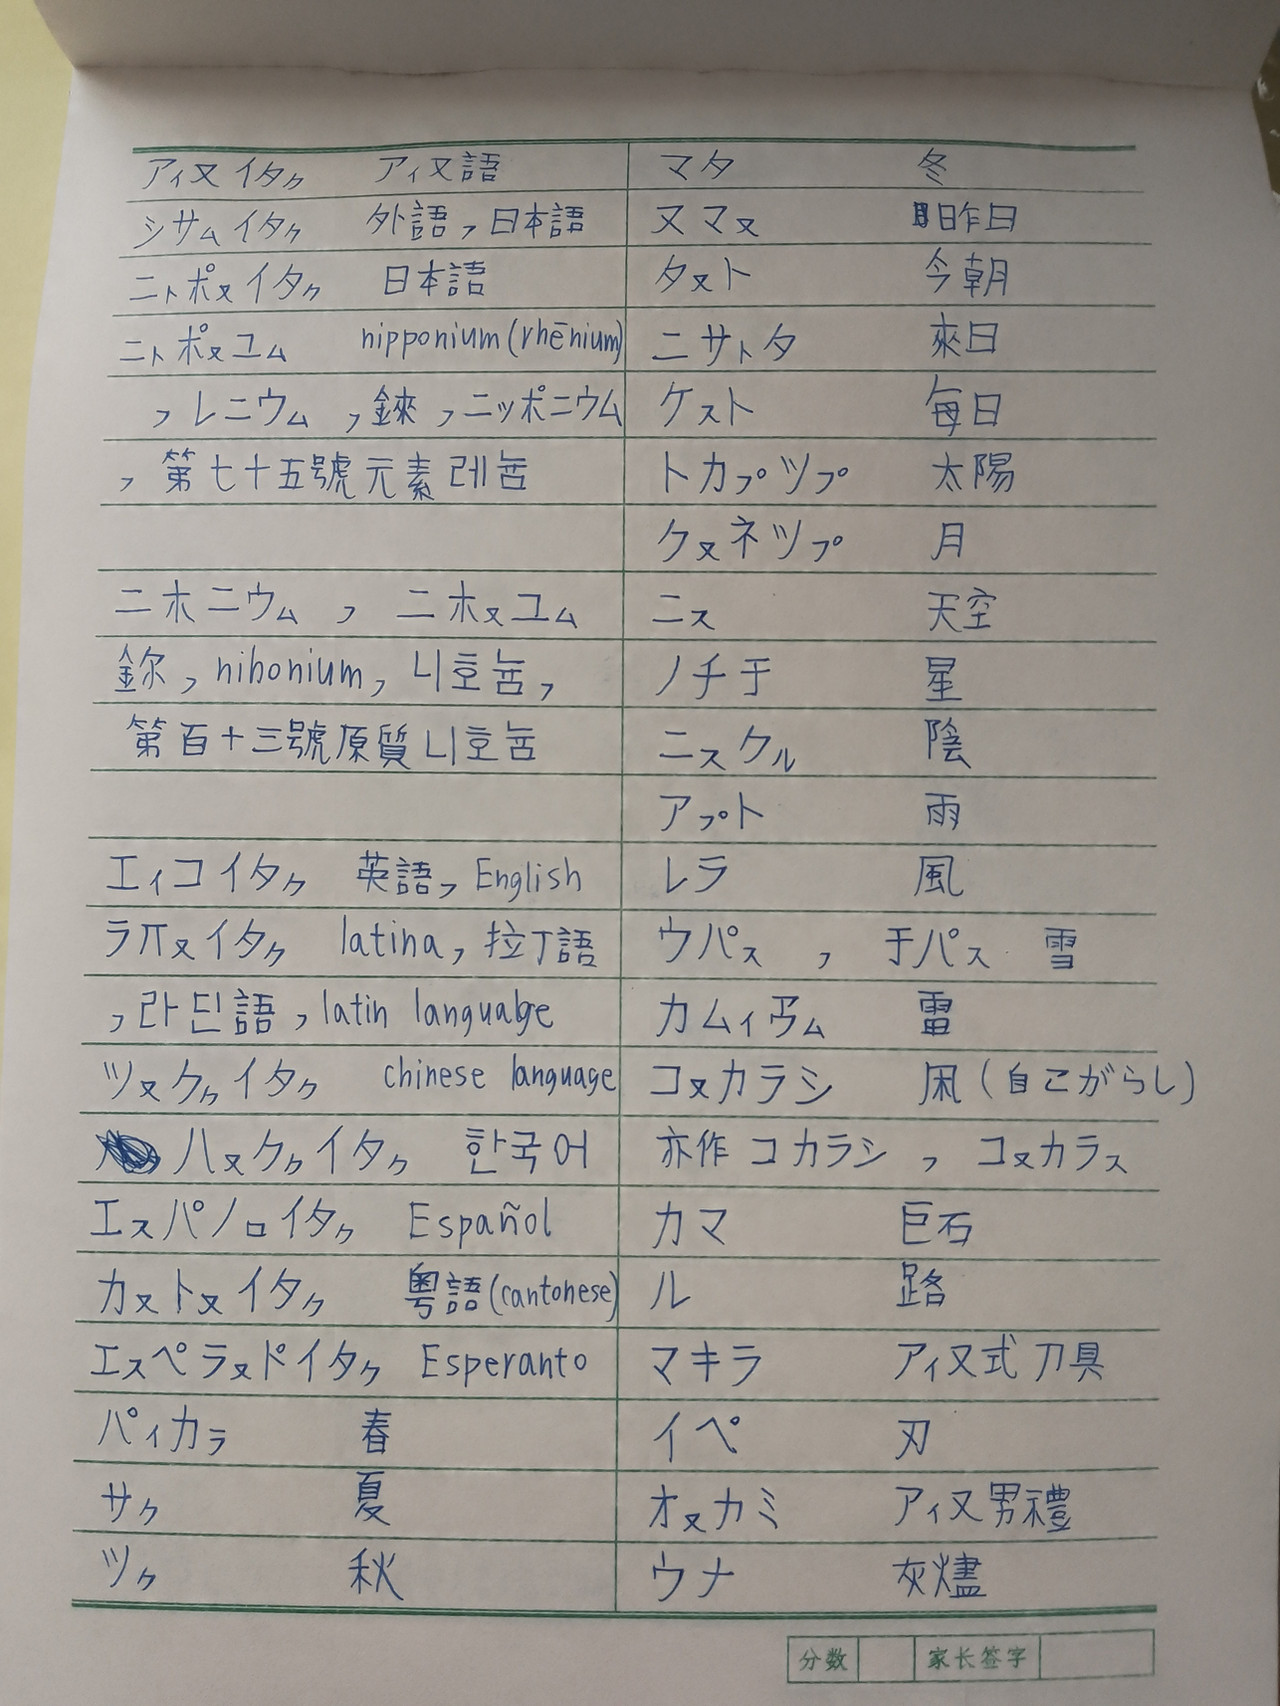 アィヌイタㇰ アィヌ語
シサㇺイタㇰ 外語，日本語
ニㇳポㇴイタㇰ 日本語
ニㇳポㇴユㇺ nipponium(rhēnium)
，レニウㇺ，錸，ニッポニウㇺ
，第七十五號元素레늄
ニホニウㇺ，ニホㇴユㇺ
鉨，nihonium，니호늄，
第百十三號原質니호늄
エィコイタㇰ 英語，English
ラㇴイタㇰ latina，拉丁語
，라틴語，latin language
ツㇴクㇰイタㇰ chinese language
ハㇴクㇰイタㇰ 한국어
エㇲパノロイタㇰ Español
カㇴトㇴイタㇰ 粵語(cantonese)
エㇲペラㇴドイタㇰ Esperanto
パィカㇻ 春
サㇰ 夏
ツㇰ 秋
マタ 冬
ヌマㇴ 昨日
タㇴト 今朝
ニサㇳタ 來日
ケㇲト 每日
トカㇷ゚ツㇷ゚ 太陽
クㇴネツㇷ゚ 月
ニㇲ 天空
ノチ于 星
ニㇲクㇽ 陰
アㇷ゚ト 雨
レラ 風
ウパㇲ，于パㇲ 雪
カムィㇺ 雷
コㇴカラシ 凩(自こがらし)
亦作 コカラシ，コㇴカラㇲ
カマ 巨石
ル 路
マキラ アィヌ式刀具
イペ 刃
オㇴカミ アィヌ男禮
ウナ 灰燼
分数 家长签字